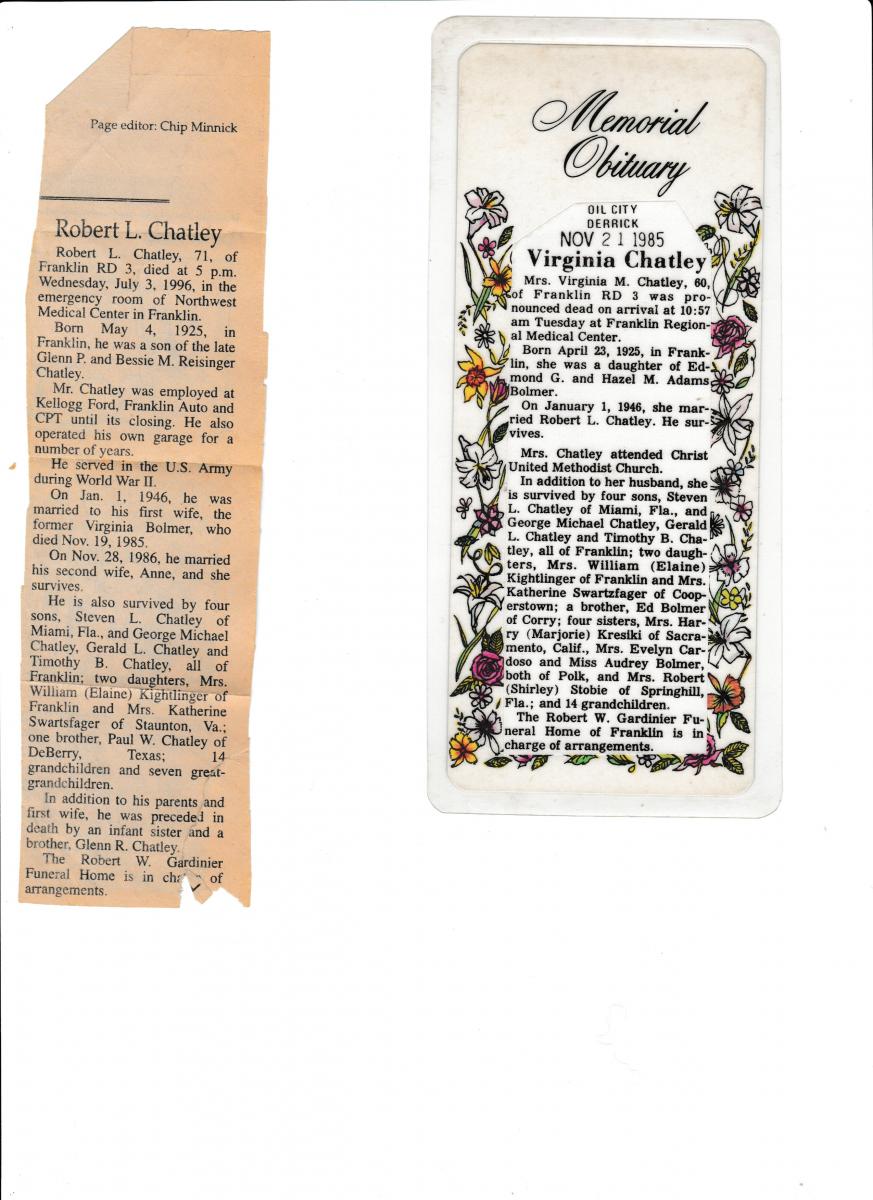 Page editor: Chip Minnick
Robert L. Chatley
Robert L. Chatley, 71, of
Franklin RD 3, died at 5 p.m.
Wednesday, July 3, 1996, in the
emergency room of Northwest
Medical Center in Franklin.
Born May 4, 1925, in
Franklin, he was a son of the late
Glenn P. and Bessie M. Reisinger
Chatley.
Mr. Chatley was employed at
Kellogg Ford, Franklin Auto and
CPT until its closing. He also
operated his own garage for a
number of years.
He served in the U.S. Army
during World War II.
On Jan. 1, 1946, he was
married to his first wife, the
former Virginia Bolmer, who
died Nov. 19, 1985.
On Nov. 28, 1986, he married
his second wife, Anne, and she
survives.
He is also survived by four
sons, Steven L. Chatley of
Miami, Fla., and George Michael
Chatley, Gerald L. Chatley and
Timothy B. Chatley, all of
Franklin; two daughters, Mrs.
William (Elaine) Kightlinger of
Franklin and Mrs. Katherine
Swartsfager of Staunton, Va.;
one brother, Paul W. Chatley of
DeBerry, Texas; 14
grandchildren and seven great-
grandchildren.
In addition to his parents and
first wife, he was preceded in
death by an infant sister and a
brother, Glenn R. Chatley.
The Robert W. Gardinier
Funeral Home is in of
arrangements.
Memorial
Obituary
OIL CITY
DERRICK
NOV 21 1985
Virginia Chatley
Mrs. Virginia M. Chatley, 60,
of Franklin RD 3 was pro-
nounced dead on arrival at 10:57
am Tuesday at Franklin Region-
al Medical Center.
Born April 23, 1925, in Frank-
lin, she was a daughter of Ed-
mond G. and Hazel M. Adams
Bolmer.
On January 1, 1946, she mar-
ried Robert L. Chatley. He sur-
vives.
Mrs. Chatley attended Christ
United Methodist Church.
In addition to her husband, she
is survived by four sons, Steven
L. Chatley of Miami, Fla., and
George Michael Chatley, Gerald
L. Chatley and Timothy B. Cha-
tley, all of Franklin; two daugh-
ters, Mrs. William (Elaine)
Kightlinger of Franklin and Mrs.
Katherine Swartzfager of Coop-
erstown; a brother, Ed Bolmer
of Corry; four sisters, Mrs. Har-
ry (Marjorie) Kresiki of Sacra-
mento, Calif., Mrs. Evelyn Car-
doso and Miss Audrey Bolmer,
both of Polk, and Mrs. Robert
(Shirley) Stobie of Springhill,
Fla.; and 14 grandchildren.
The Robert W. Gardinier Fu-
neral Home of Franklin is in
charge of arrangements.